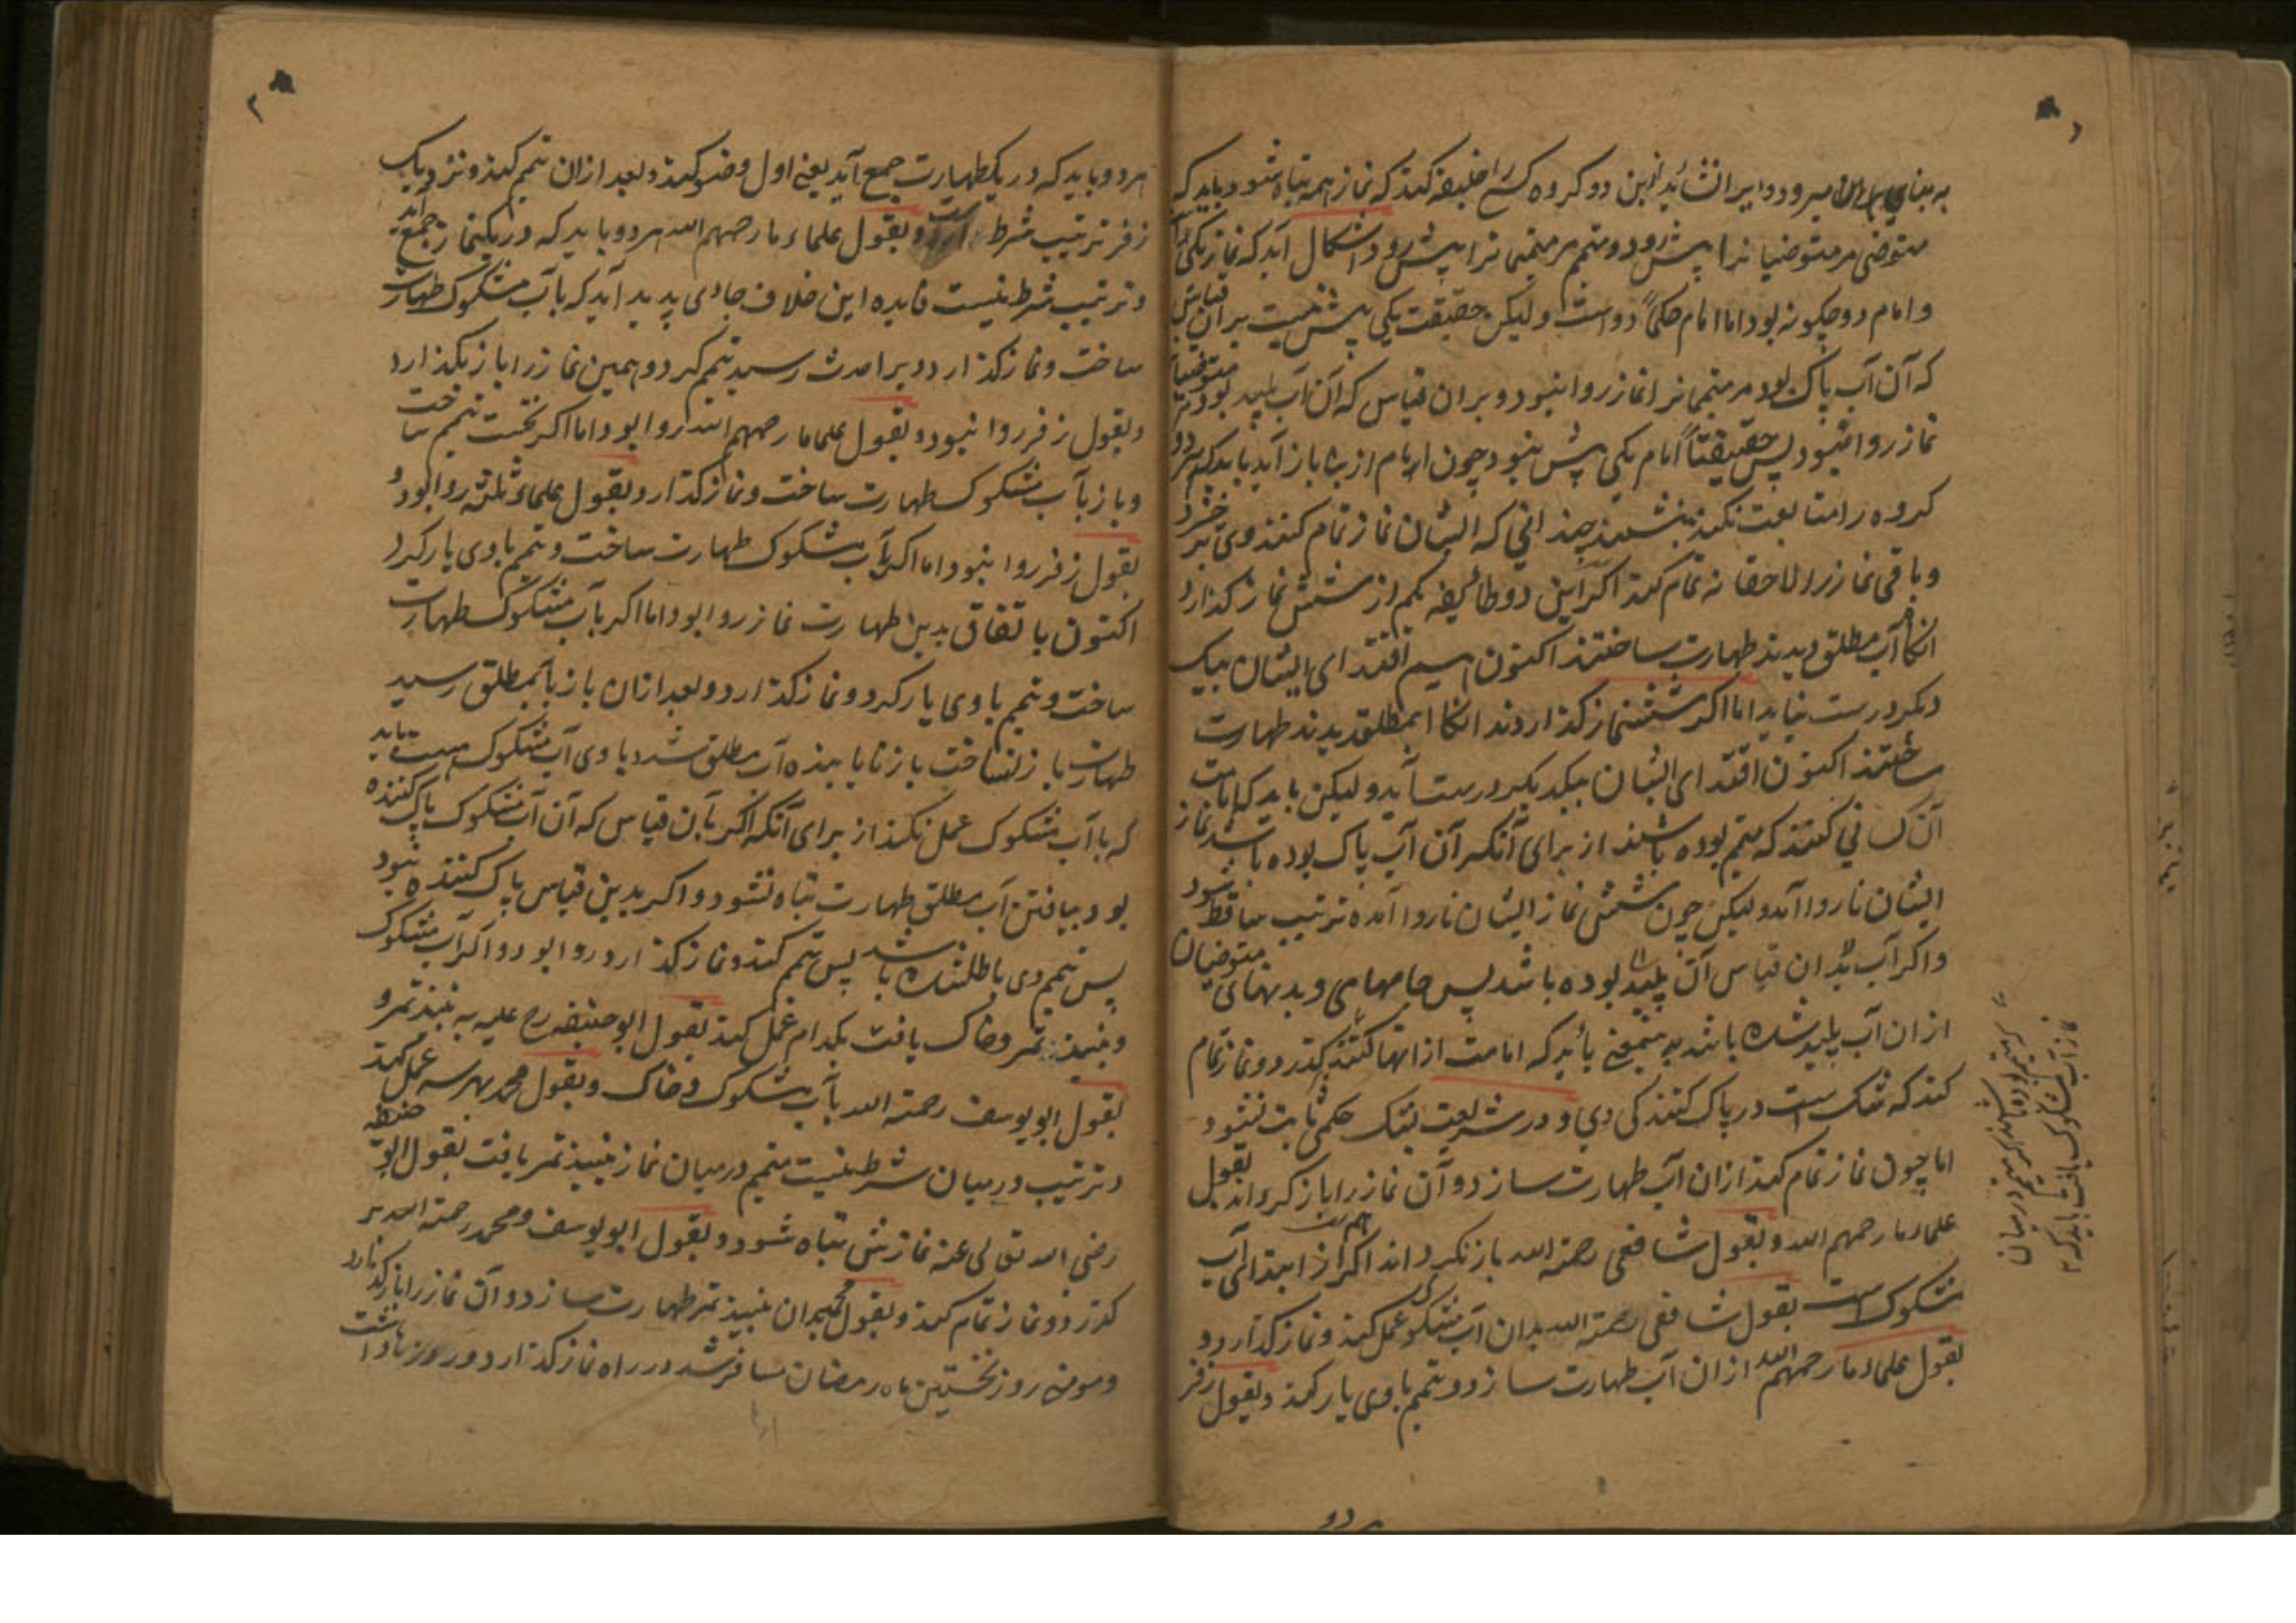 به بنای میرود و ایرا نشاید ازین دو گروه کسی را خلیفه کند که نماز همه تباه شود و باید که
متوضی مر متوضیانرا پیش رود و متیمم مر متیممانرا پیش رود و اشکال آید که نماز یکی
و امام دو چگونه بود اما امام حکماً دو است ولیکن حقیقت یکی پیش نیست بر آن قیاس
که آن آب پاک بود مر متیممانرا نماز روا نبود و بر آن قیاس که آن آب پلید بود مر متوضیانرا
نماز روا نبود پس حقیقتاً امام یکی پیش نبود چون امام از بنا باز آید باید که هر دو
گروه را متابعت نکند بنشیند چندانی که ایشان نماز تمام کنند وی بر خیزد
و باقی نماز را لاحقانه تمام کند اگر این دو طائیفه کم از شش نماز گذارد
آنگاه آب مطلق دیدند طهارت ساختند اکنون اقتدای ایشان بیک
دیگر درست نیاید اما اگر شش نماز گذاردند آنگاه آبمطلق دیدند طهارت
ساختند اکنون اقتدای ایشان بیکدیگر درست آید ولیکن باید که امامت
آن کسانی کنند که متیمم بوده باشند از برای آنکه اگر آن آب پاک بوده باشد نماز
ایشان ناروا آمد ولیکن چون شش نماز ایشان ناروا آمده ترتیب ساقط شود
و اگر آب بدان قیاس آن پلید بوده باشد پس جامهای و بدنهای متوضیان
از ان آب پلید شده باشد باید که امامت از انها کنند گذرد و نماز تمام
کند که شک است در پاک کنندگی وی و در شریعت بشک حکمی ثابت نشود
اما چون نماز تمام کند از ان آب طهارت سازد و آن نماز را باز گرداند بقول
علماء ما رحمهم الله و بقول شافعی رحمة الله باز نگرداند اگر از ابتدا آب
مشکوک است بقول شافعی رحمة الله بدان آب مشکوک عمل کند و نماز گذارد و
بقول علماء ما رحمهم الله از ان آب طهارت سازد و تیمم باوی یار کند و بقول زفر
هر دو
متیمم در میان
نماز آب مشکوک یافت باید که
۲
هر دو باید که در یک طهارت جمع آید یعنی اول وضو کند و بعد از ان تیمم کند و نزدیک
زفر ترتیب شرط است و بقول علماء ما رحمهم الله هر دو باید که در یک نماز جمع آید
و ترتیب شرط نیست فایده این خلاف جای پدید آید که بآب مشکوک طهارت
ساخت و نماز گذارد و برا حدث رسید تیمم کرد و همین نماز را باز بگذارد
و بقول زفر روا نبود و بقول علما ما رحمهم الله روا بود اما اگر نخست تیمم ساخت
و باز بآب مشکوک طهارت ساخت و نماز گذارد و بقول علماء ثلثه روا بود و
بقول زفر روا نبود اما اگر بآب مشکوک طهارت ساخت و تیمم باوی یار کرد
اکنون باتفاق بدین طهارت نماز روا بود اما اگر بآب مشکوک طهارت
ساخت و تیمم باوی یار کرد و نماز گذارد و بعد از ان باز بآبمطلق رسید
طهارت باز نساخت باز نایابنده آب مطلق شد و باوی آب مشکوک هست باید
که با آب مشکوک عمل نکند از برای آنکه اگر بآن قیاس که آن آب مشکوک پاک کننده
بود بیافتن آب مطلق طهارت تباه نشود و اگر بدین قیاس پاک کننده نبود
پس تیمم وی باطل شده باشد پس تیمم کند و نماز گذارد روا بود و اگر آب مشکوک
و نبیذ تمر و خاک یافت بکدام عمل کند بقول ابو حنیفه رح علیه به نبیذ تمر و
بقول ابو یوسف رحمة الله بآب مشکوک و خاک و بقول محمد بهر سه عمل کند
و ترتیب در میان شرط نیست متیمم در میان نماز نبیذ تمر یافت بقول ابو حنیفه
رضی الله تعالی عنه نمازش تباه شود و بقول ابو یوسف و محمد رحمة الله بر
گذرد و نماز تمام کند و بقول محمد بدان نبیذ تمر طهارت سازد و آن نماز را باز گذارد
و مؤمنی روز نخستین ماه رمضان مسافر شد در راه نماز گذارد و روزه داشت